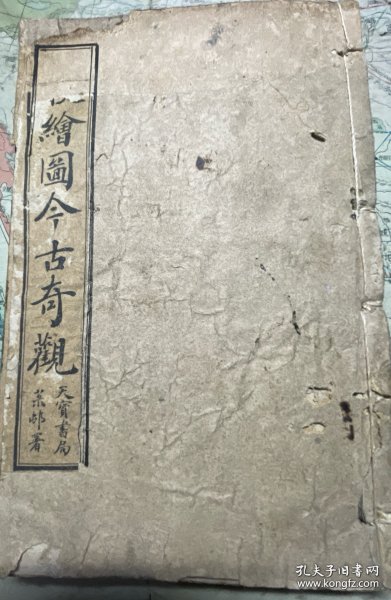 繪圖今古奇觀
天寶書局
葉邨署
孔夫子旧书网
www.kongfz.com